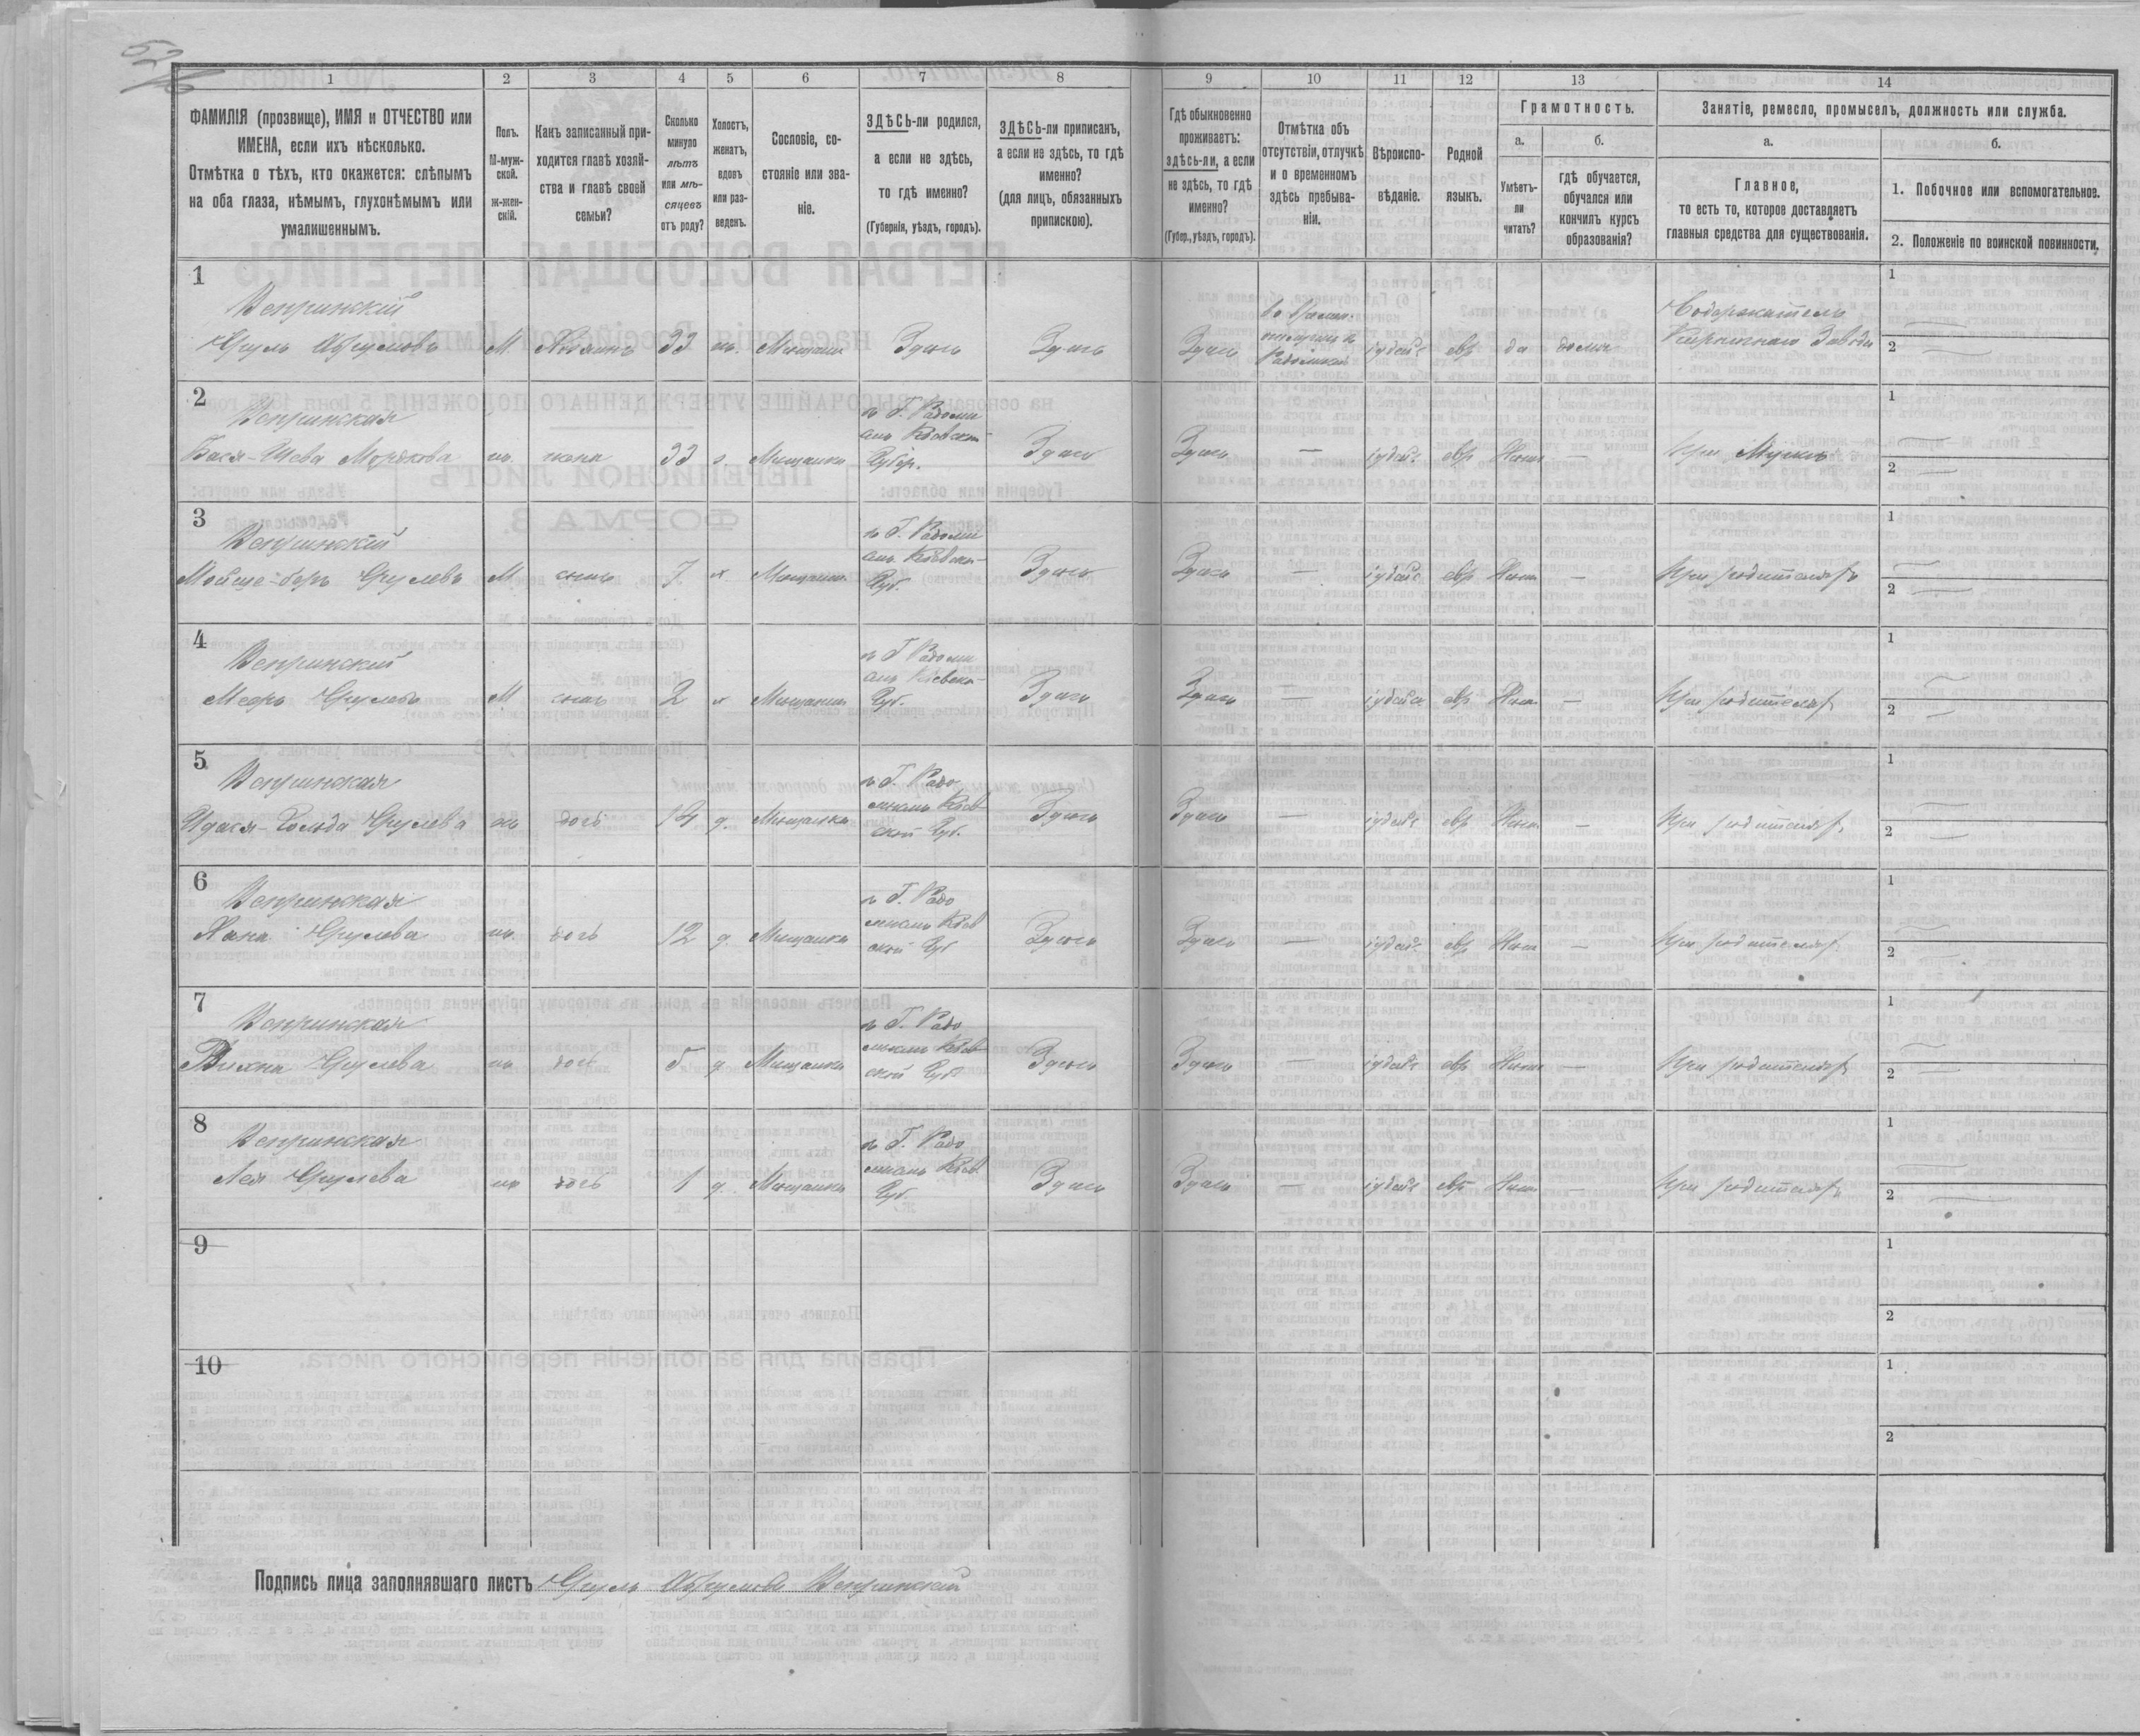 52
1 2 3 4 5 6 7 8 9 10 11 12 13 14
ФАМИЛІЯ (прозвище), ИМЯ и ОТЧЕСТВО или
ИМЕНА, если ихъ нѣсколько.
Отмѣтка о тѣхъ, кто окажется: слѣпымъ
на оба глаза, нѣмымъ, глухонѣмымъ или
умалишеннымъ.
Полъ.
М-муж-
ской.
ж-жен-
скій.
Какъ записанный при-
ходится главѣ хозяй-
ства и главѣ своей
семьи?
Сколько
минуло
лѣтъ
или мѣ-
сяцевъ
отъ роду?
Холостъ,
женатъ,
вдовъ
или раз-
веденъ.
Сословіе, со-
стояніе или зва-
ніе.
ЗДѢСЬ-ли родился,
а если не здѣсь,
то гдѣ именно?
(Губернія, уѣздъ, городъ).
ЗДѢСЬ-ли приписанъ,
а если не здѣсь, то гдѣ
именно?
(для лицъ, обязанныхъ
припискою).
Гдѣ обыкновенно
проживаетъ:
здѣсь-ли, а если
не здѣсь, то гдѣ
именно?
(Губер., уѣздъ, городъ).
Отмѣтка объ
отсутствіи, отлучкѣ
и о временномъ
здѣсь пребыва-
ніи.
Вѣроиспо-
вѣданіе.
Родной
языкъ.
Грамотность.
а.
Умѣетъ-
ли
читать?
б.
гдѣ обучается,
обучался или
кончилъ курсъ
образованія?
Занятіе, ремесло, промыселъ, должность или служба.
а.
Главное,
то есть то, которое доставляетъ
главныя средства для существованія.
б.
1. Побочное или вспомогательное.
2. Положеніе по воинской повинности.
1
Вепринскій
Сруль Абрумовъ М Хозяинъ 33 ж. Мещанин Здѣсь Здѣсь Здѣсь іудейс евр да дома Содержатель
Кирпичнаго Завода
1
2
2
Вепринская
Бася-Шева Мордкова ж. жена 33 з. Мещанка
въ Г. Радомы
слѣ Кіевской
Губер.
Здѣсь Здѣсь — іудей. евр Нѣтъ — При Мужѣ
1
2
3
Вепринскій
Мойше-беръ Срулевъ М сынъ 7 х Мещанин
въ Г. Радомы
слѣ Кіевской
Губ.
Здѣсь Здѣсь — іудейс евр Нѣтъ — При родителяхъ
1
2
4
Вепринскій
Мееръ Срулевъ М сынъ 2 х Мещанин
въ Г Радомы
слѣ Кіевской
Губ.
Здѣсь Здѣсь — іудейс евр Нѣтъ — При родителях
1
2
5
Вепринская
Срулева ж дочь 14 д. Мещанка
въ Г. Радо
мыслѣ Кіев
ской Губ.
Здѣсь Здѣсь — іудейс евр Нѣтъ — При родителях
1
2
6
Вепринская
Хана Срулева ж. дочь 12 д. Мещанка
въ Г. Радо
мыслѣ Кіев
ской Губ
Здѣсь Здѣсь — іудей. евр Нѣтъ — При родителях
1
2
7
Вепринская
Рыхна Срулева ж дочь 5 д Мещанка
въ Г. Радо
мыслѣ Кіев
ской Губ
Здѣсь Здѣсь — іудейс евр Нѣтъ — При родителях
1
2
8
Вепринская
Лея Срулева ж дочь 1 д. Мещанка
въ Г. Радо
мыслѣ Кіев
Губ.
Здѣсь Здѣсь — іудейс евр Нѣтъ — При родителях
1
2
9
1
2
10
1
2
Подпись лица заполнявшаго листъ Сруль Абрумовъ Вепринскій